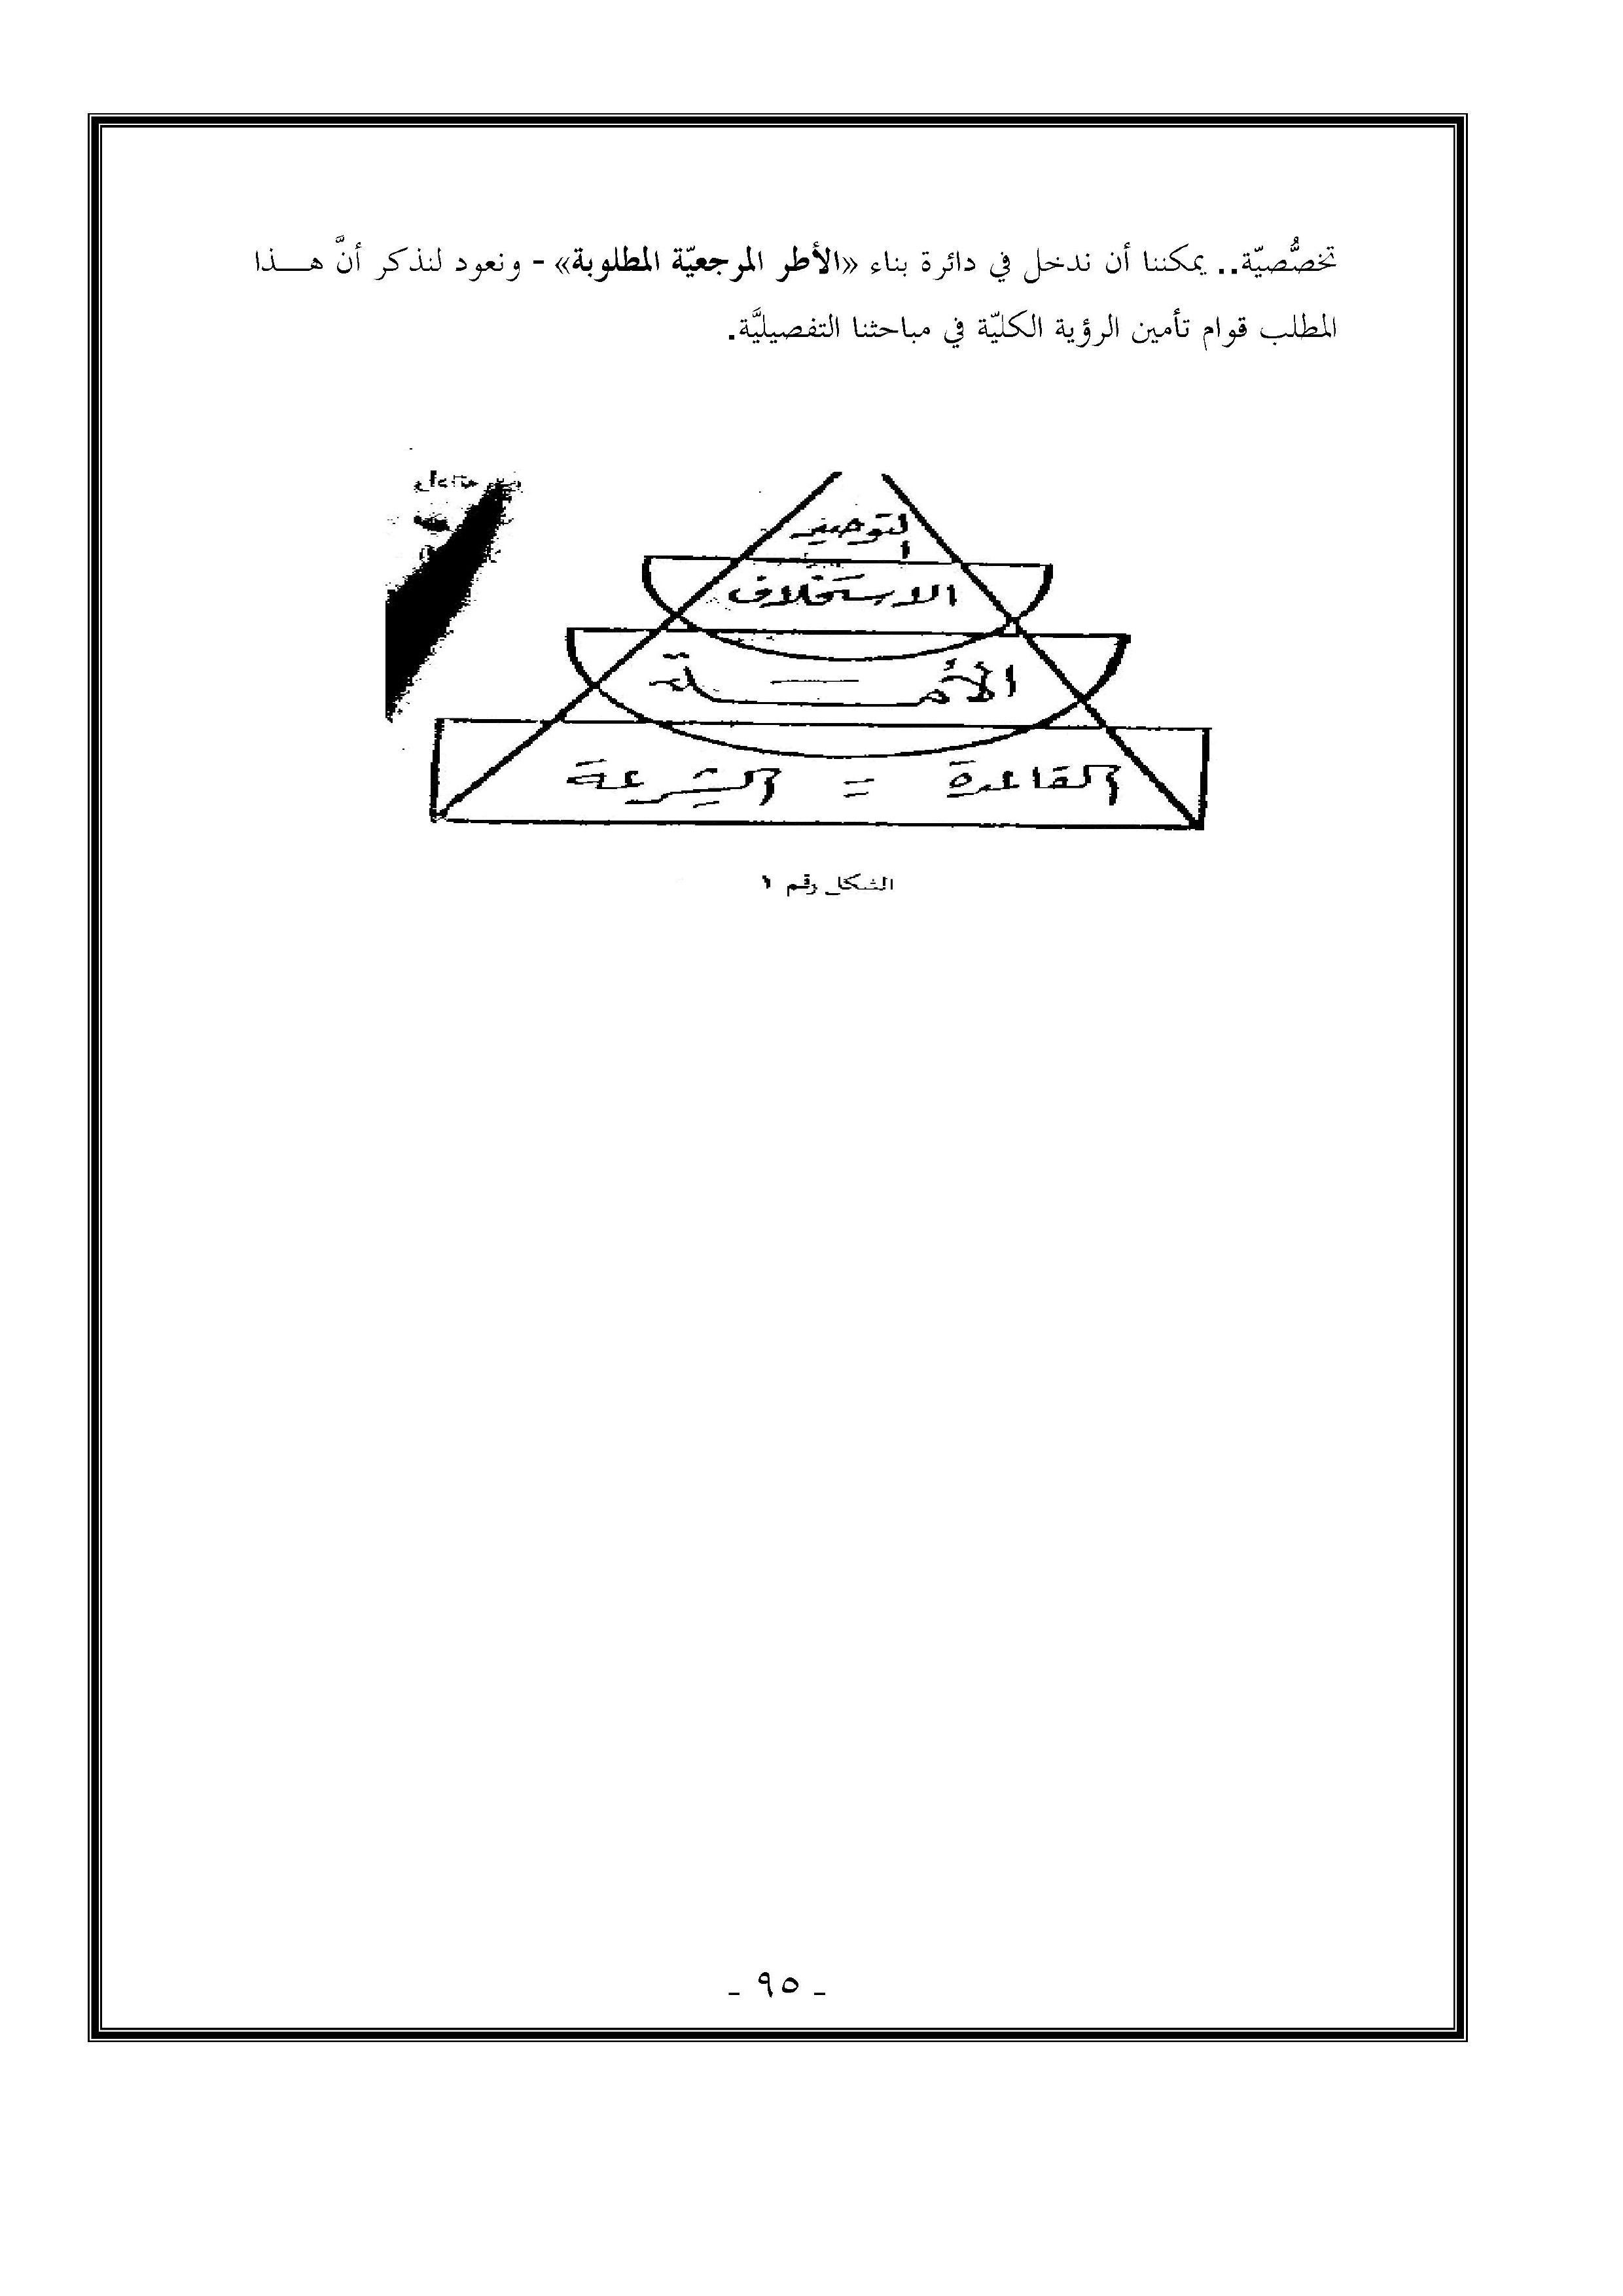 تخصُّصيّة.. يمكننا أن ندخل في دائرة بناء «الأطر المرجعيّة المطلوبة» - ونعود لنذكر أنَّ هـــذا
المطلب قوام تأمين الرؤية الكليّة في مباحثنا التفصيليَّة.
الاستخلاف
الأمـــة
القاعدة = الشرعة
الشكل رقم ١
- ٩٥ -